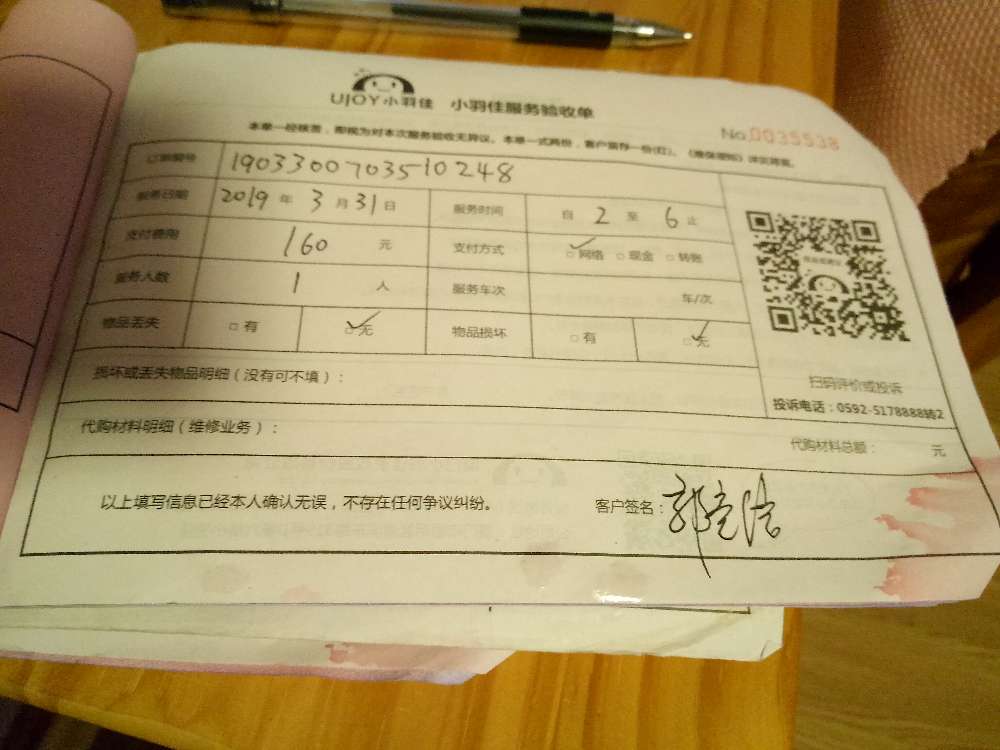 UJOY小羽佳 小羽佳服务验收单
本单一经核签，即视为对本次服务验收无异议。本单一式两份，客户留存一份(红)。
No.0035538
订单编号 190330070351 0248
服务日期 2019年3月31日 服务时间 自2至6止
支付费用 160元 支付方式 ✓□网络 □现金 □转账
服务人数 1人 服务车次 车/次
物品丢失 □有 ☑无 物品损坏 □有 ☑无
扫码评价或投诉
损坏或丢失物品明细（没有可不填）：
投诉电话：0592-5178888转2
代购材料明细（维修业务）： 代购材料总额： 元
以上填写信息已经本人确认无误，不存在任何争议纠纷。 客户签名：